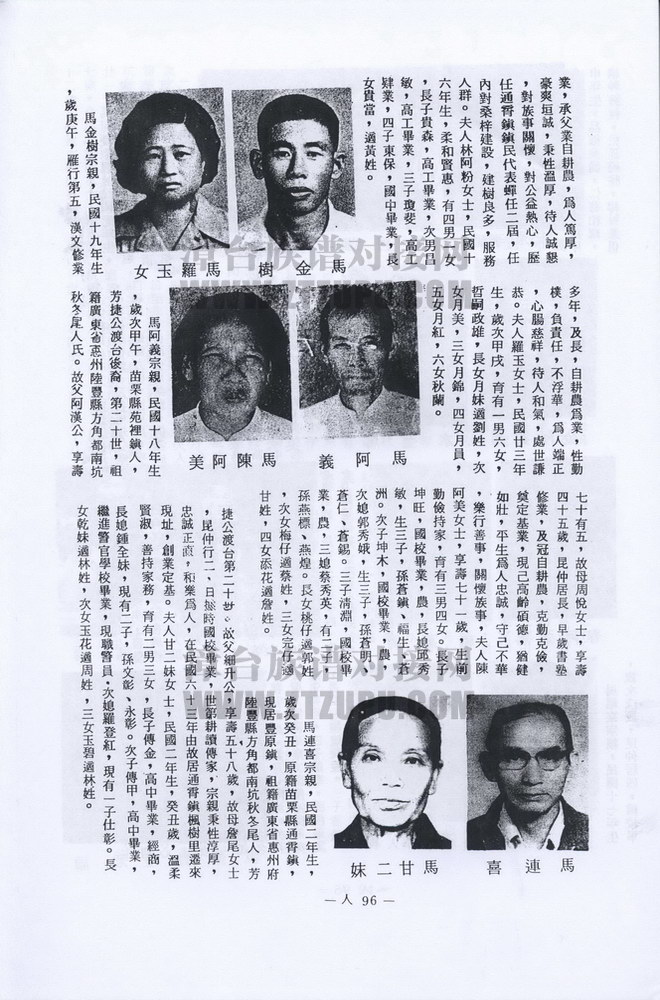 業，承父業自耕農，爲人篤厚，
豪爽垣誠，秉性溫厚，待人誠懇
，對族事關懷，對公益熱心，歷
任通霄鎭鎭民代表蟬任二屆，任
內對桑梓建設，建樹良多，服務
人群。夫人林阿粉女士，民國十
六年生，柔和賢惠，有四男一女
，長子貴森，高工畢業，次男昌
敏，高工畢業，三子瓊斐，高工
肄業，四子東保，國中畢業，長
女貴當，適黃姓。
馬金樹
馬羅玉女
馬金樹宗親，民國十九年生
，歲庚午，雁行第五，漢文修業
多年，及長，自耕農爲業，性勤
樸，負責任，不浮華，爲人端正
，心腸慈祥，待人和氣，處世謙
恭。夫人羅玉女士，民國廿三年
生，歲次甲戌，育有一男六女，
哲嗣政雄，長女月妹適劉姓，次
女月美，三女月錦，四女月員，
五女月紅，六女秋蘭。
馬阿義
馬陳阿美
馬阿義宗親，民國十八年生
，歲次甲午，苗栗縣苑裡鎭人，
芳捷公渡台後裔，第二十世，祖
籍廣東省惠州陸豐縣方角都南坑
秋冬尾人氏。故父阿漢公，享壽
七十有五，故母周悅女士，享壽
四十五歲，昆仲居長，早歲書塾
修業，及冠自耕農，克勤克儉，
奠定基業，現己高齡碩德，猶健
如壯，平生爲人忠誠，守己不華
，樂行善事，關懷族事，夫人陳
阿美女士，享壽七十一歲，生前
勤儉持家，育有三男四女。長子
坤旺，國校畢業，農，長媳邱秀
敏，生三子，孫蒼鎭、福生、蒼
洲。次子坤木，國校畢業，農，
次媳郭秀娥，生三子，孫蒼明、
蒼仁、蒼錫。三子清淵，國校畢
業，農，三媳蔡秀英，有二子，
孫燕標、燕煌。長女桃仔適郭姓
，次女梅仔適蔡姓，三女完仔適
甘姓，四女添花適詹姓。
馬連喜
馬甘二妹
馬連喜宗親，民國二年生，
歲次癸丑，原籍苗栗縣通霄鎭，
現居豐原鎭，祖籍廣東省惠州府
陸豐縣方角都南坑秋冬尾人，芳
捷公渡台第二十世。故父細升公，享壽五十八歲，故母詹尾女士
，昆仲行二、日據時國校畢業，世第耕讀傳家，宗親秉性淳厚，
忠誠正直，和樂爲人，在民國六十三年由故居通霄鎭楓樹里遷來
現址，創業定基。夫人甘二妹女士，民國二年生，癸丑歲，溫柔
賢淑，善持家務，育有二男三女，長子傳金，高中畢業，經商，
長媳鍾全妹，現有二子，孫文彰、永彰。次子傳甲，高中畢業，
繼進警官學校畢業，現職警員，次媳羅登紅，現有一子仕彰。長
女乾妹適林姓，次女玉花適周姓，三女玉碧適林姓。
— 人 96 —
清台族谱对接网
WWW.CTZUPU.COM
清台族谱对接网
WWW.CTZUPU.COM